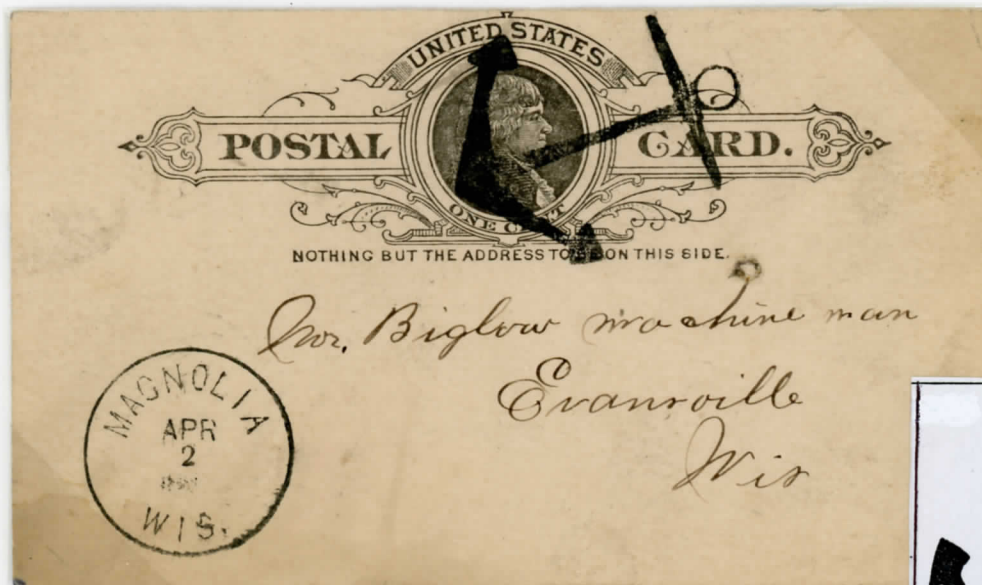 UNITED STATES
POSTAL CARD.
ONE CENT
NOTHING BUT THE ADDRESS TO BE ON THIS SIDE.
Mr. Biglow machine man
Evansville
Wis
MAGNOLIA
APR
2
WIS.